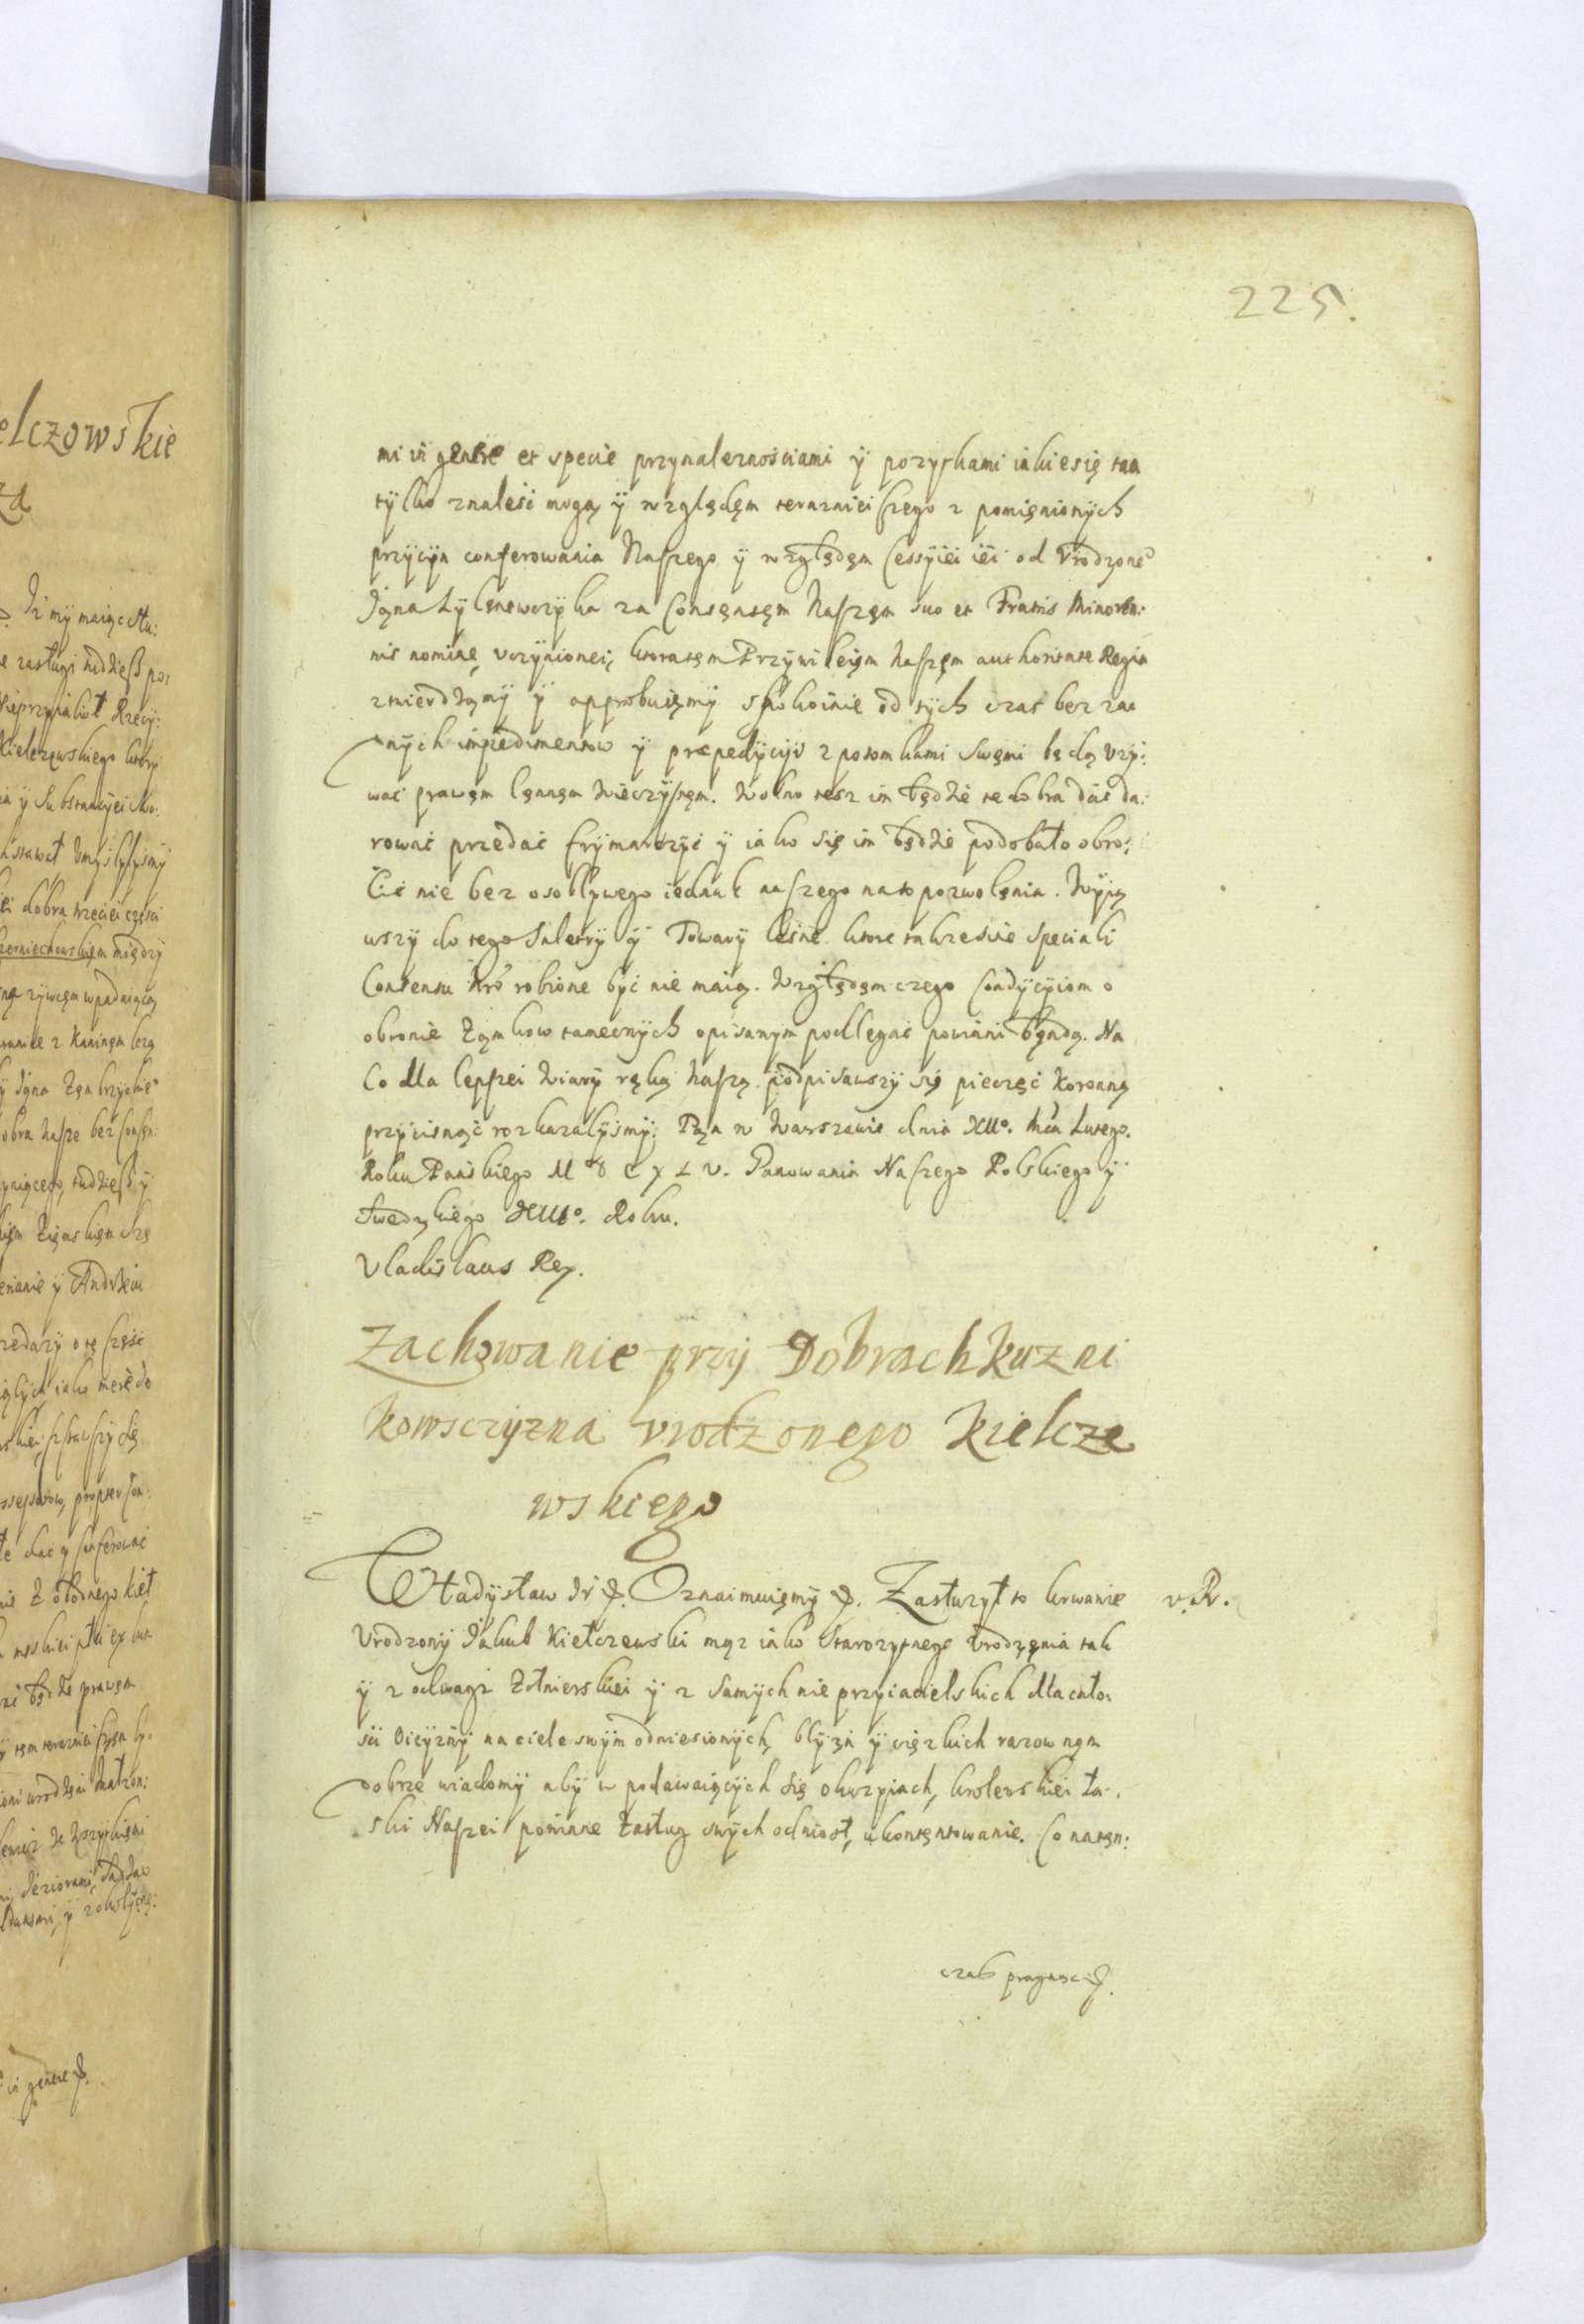 225.
mi in genere et specie przynaleznościami ÿ pozytkami iakiesię tam
tÿlko znaleść mogą ÿ względęm teraznieiszego z pomięnionÿch
przÿcÿn conferowania Naszego ÿ względęm Cessÿiei iei od Vrodzone°
za Consęnsęm Naszęm suo et Fratris Minoren:
nis nominę vczÿnionei, ktora tęm Przÿwileięm naszęm authoritate Regia
ztwierdzamÿ ÿ approbuięmÿ spokoinie od tÿch czas bez zad
nÿch impedimentow ÿ præpedÿcÿi z potomkami swęmi będą vzÿ:
wać prawęm lęnnęm wieczÿstęm. Wolno tesz im będzie te dobra dać da:
rować przedać frÿmarczÿć ÿ iako się im będzie podobało obro:
cić nie bez osoblywego iednak naszego na to pozwolęnia. Wÿią
wszÿ do tego Saletrÿ ÿ Towarÿ leśne ktore takze sine speciali
Consensu nrō robione bÿć nie maią. Względęm czego Condÿcÿiom o
obronie Zamkow tamecznÿch opisanÿm podlegać powinni bęndą. Na
Co dla lepszei Wiarÿ ręką Naszą podpisawszÿ się pieczęć Koronną
przÿcisnąć rozkazalÿsmÿ. Dan w Warszawie dnia XII°. Mca Lutego.
Roku Pańskiego M D C X L V. Panowania Naszego Polskiego ÿ
Swedzkiego XIII°. Roku.
Vladislaus Rex.
Zachowanie przÿ Dobrach Kuzni
kowsczÿzna vrodzonego Kielcze
wskiego
Władÿsław IV &. Oznaimuięmÿ &. Zasłuzÿł to krwawie v.R.
Vrodzonÿ Jakub Kiełczewski mąz iako Starozÿtnego Vrodzęnia tak
ÿ z odwagi Zołnierskiei ÿ z samÿch nieprzÿiacielskich dla cało:
sci Oicÿznÿ na ciele swÿm odniesionÿch, blÿzn ÿ cięzkich razow nąm
dobrze wiadomÿ abÿ w podawaiącÿch się okazÿiach, krolewskiei ła:
ski Naszei powinne zasług swÿch odniosł, ukontęntowanie. Co na tęn:
czas pragnąc &.